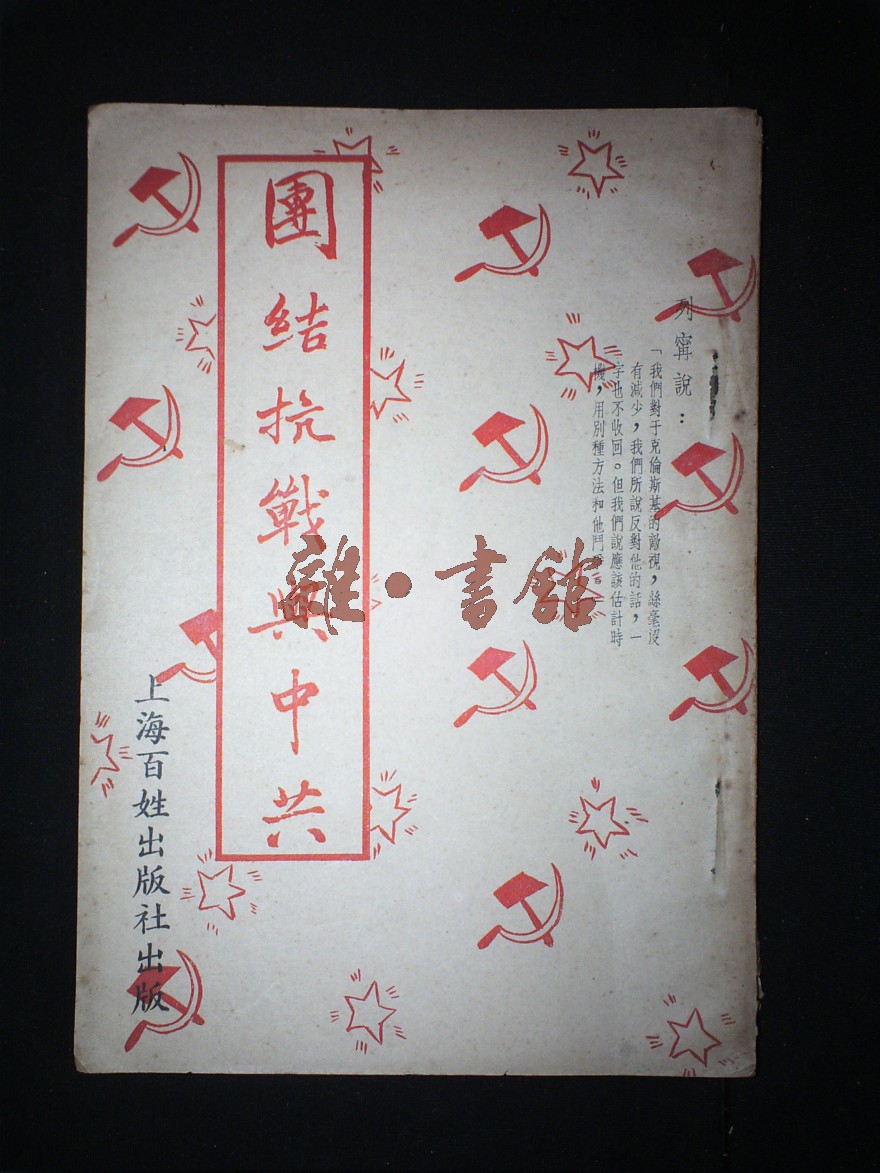 列甯說：
「我們對于克倫斯基的敵視，絲毫沒
有減少，我們所說反對他的話，一
字也不收回。但我們說應該估計時
機，用別種方法和他鬥爭。」
團結抗戰與中共
上海百姓出版社出版
雜·書館